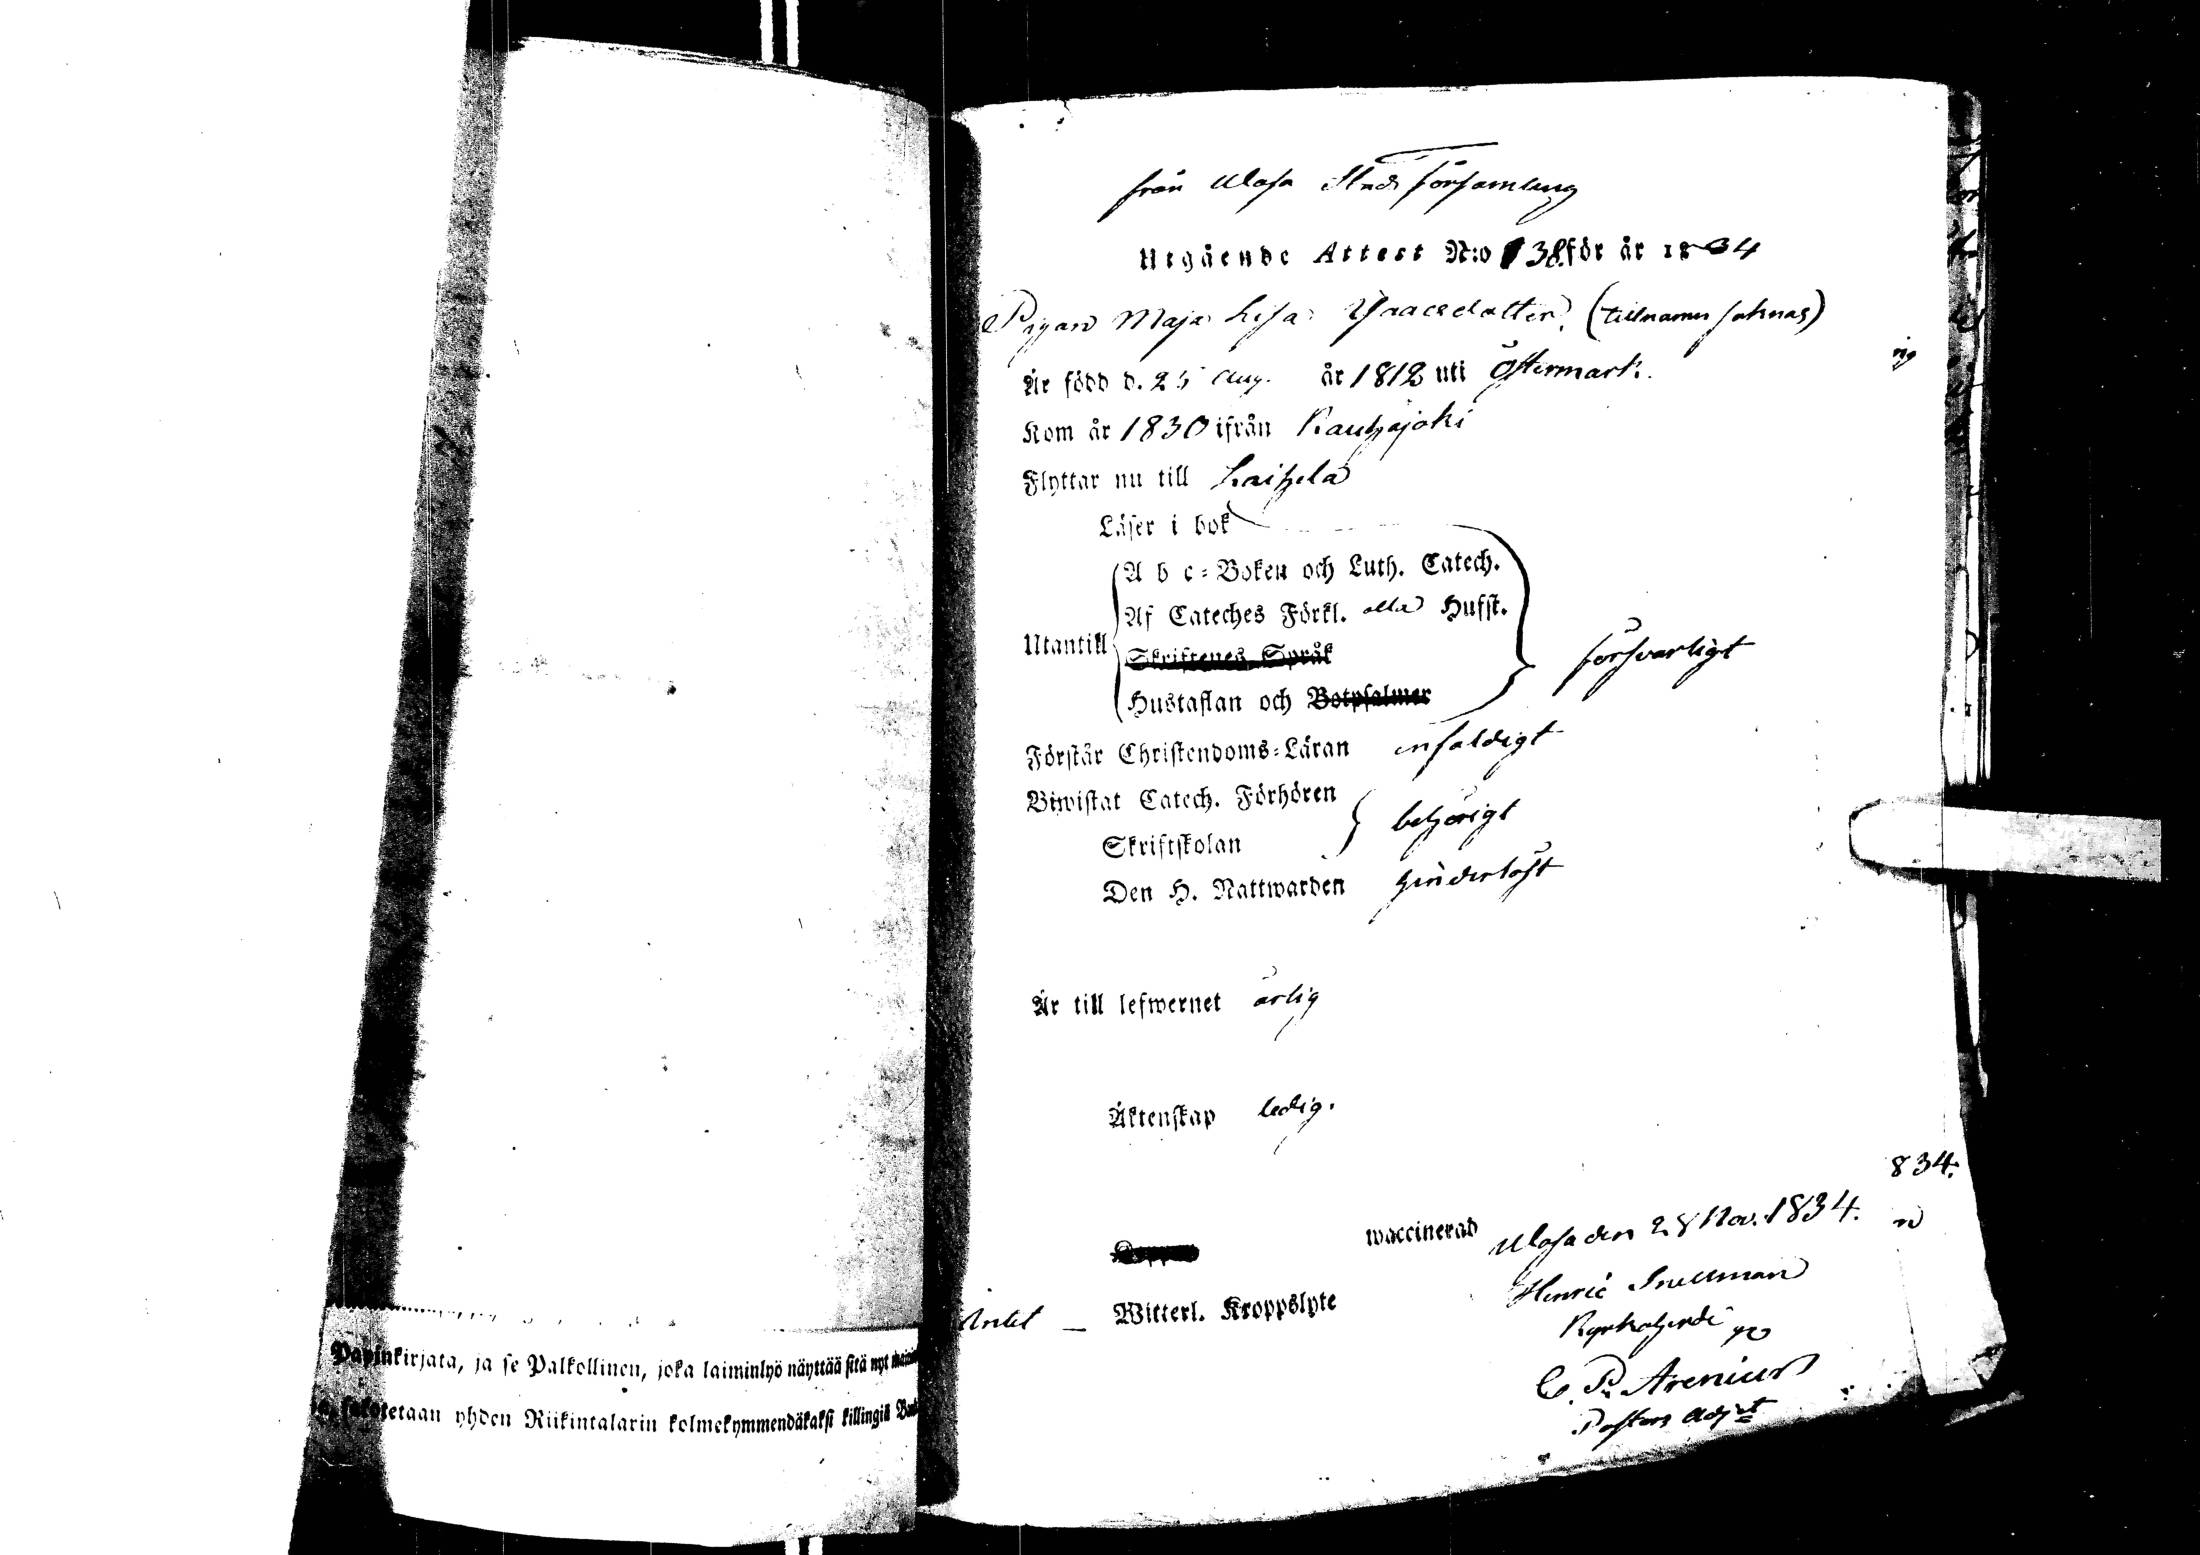 Papinkirjata, ja se Palkollinen, joka laiminlyö näyttää sitä nyt
yhden Riikintalarin kolmekymmendäkaksi killingiä
från Wasa Stads Församling
Utgående Attest N:o 138. för år 1834
Pigan Maja Lisa Isaacsdotter. (tillnamn saknas)
Är född d. 25 Aug. år 1812 uti Östermark.
Kom år 1830 ifrån Kauhajoki
Flyttar nu till Laihela
Läser i bok
A b c-Boken och Luth. Catech.
Af Cateches Förkl. alla Hufst.
Utantill
Skriftenes Språk
försvarligt
Hustaflan och Botpsalmer
Förstår Christendoms-Läran enfaldigt
Biwistat Catech. Förhören
behörigt
Skriftskolan
Den H. Nattwarden hinderlöst
Är till lefwernet ärlig
Äktenskap ledig.
waccinerad
Witterl. Kroppslyte
Wasa den 28 Nov. 1834.
Henric Snellman
Kyrkoherde
C. P. Arenius
Pastors Adjct
rig
834.